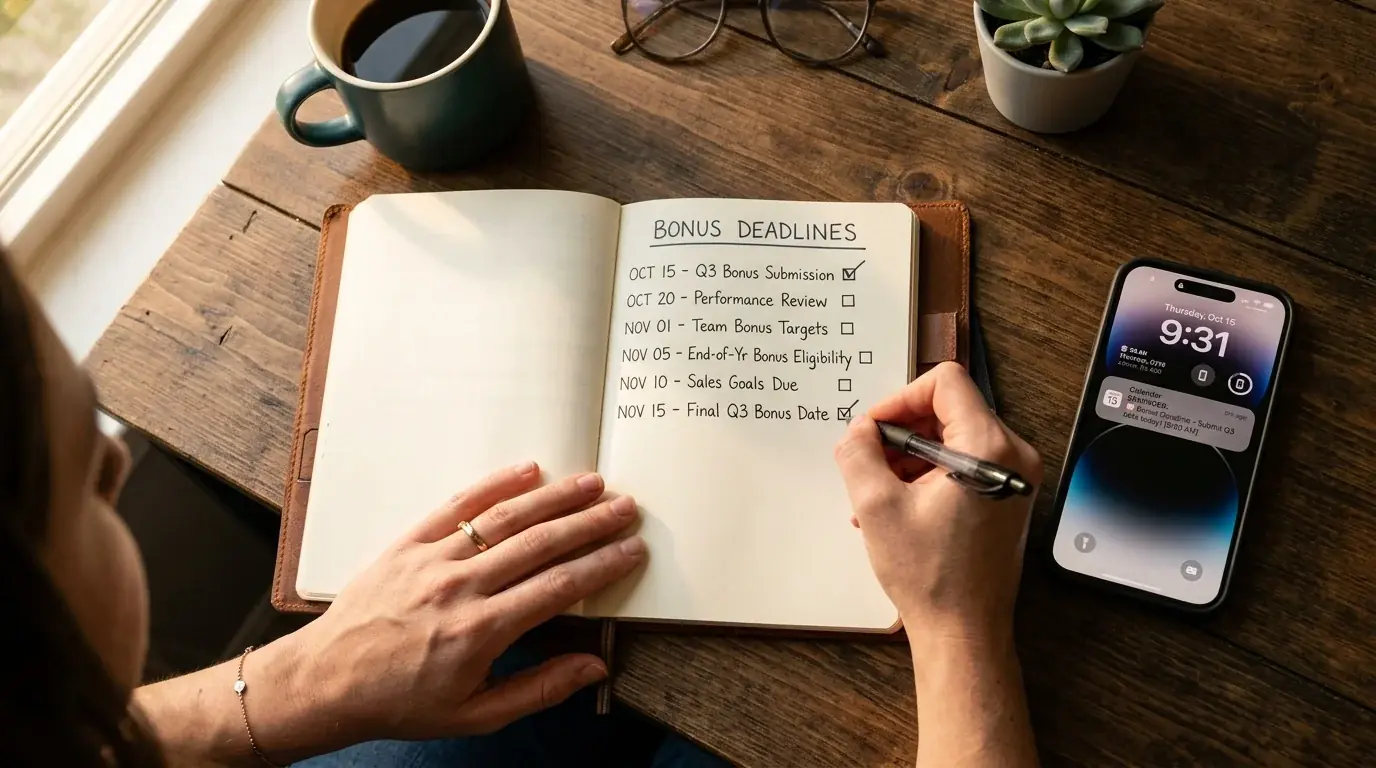 BONUS DEADLINES
OCT 15 - Q3 Bonus Submission
OCT 20 - Performance Review
NOV 01 - Team Bonus Targets
NOV 05 - End-of-Yr Bonus Eligibility
NOV 10 - Sales Goals Due
NOV 15 - Final Q3 Bonus Date
Thursday, Oct 15
9:31
Calendar
15
Submit Q3
today!